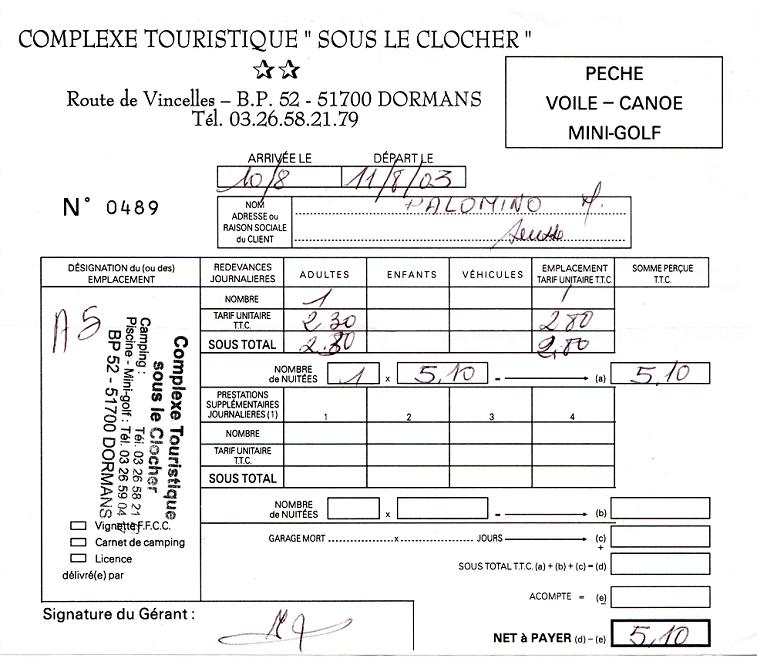 COMPLEXE TOURISTIQUE " SOUS LE CLOCHER "
Route de Vincelles – B.P. 52 - 51700 DORMANS
Tél. 03.26.58.21.79
PECHE
VOILE – CANOE
MINI-GOLF
ARRIVÉE LE DÉPART LE
10/8 11/8/03
N° 0489
NOM ADRESSE ou RAISON SOCIALE du CLIENT
PALOMINO
DÉSIGNATION du (ou des) EMPLACEMENT
REDEVANCES JOURNALIERES ADULTES ENFANTS VÉHICULES EMPLACEMENT TARIF UNITAIRE T.T.C. SOMME PERÇUE T.T.C.
NOMBRE 1 1
TARIF UNITAIRE T.T.C. 2.30 2.80
SOUS TOTAL 2.30 2.80
A5
NOMBRE de NUITÉES 1 x 5,10 = (a) 5,10
Complexe Touristique
sous le Clocher
Camping : Tél. 03 26 58 21
Piscine - Mini-golf : Tél. 03 26 59 04
BP 52 - 51700 DORMANS
PRESTATIONS SUPPLÉMENTAIRES JOURNALIERES (1) 1 2 3 4
NOMBRE
TARIF UNITAIRE T.T.C.
SOUS TOTAL
NOMBRE de NUITÉES x = (b)
Vignette F.F.C.C.
Carnet de camping
Licence
délivré(e) par
GARAGE MORT ........ x ........ JOURS (c)
+
SOUS TOTAL T.T.C. (a) + (b) + (c) = (d)
ACOMPTE = (e)
Signature du Gérant :
NET à PAYER (d) – (e) 5,10